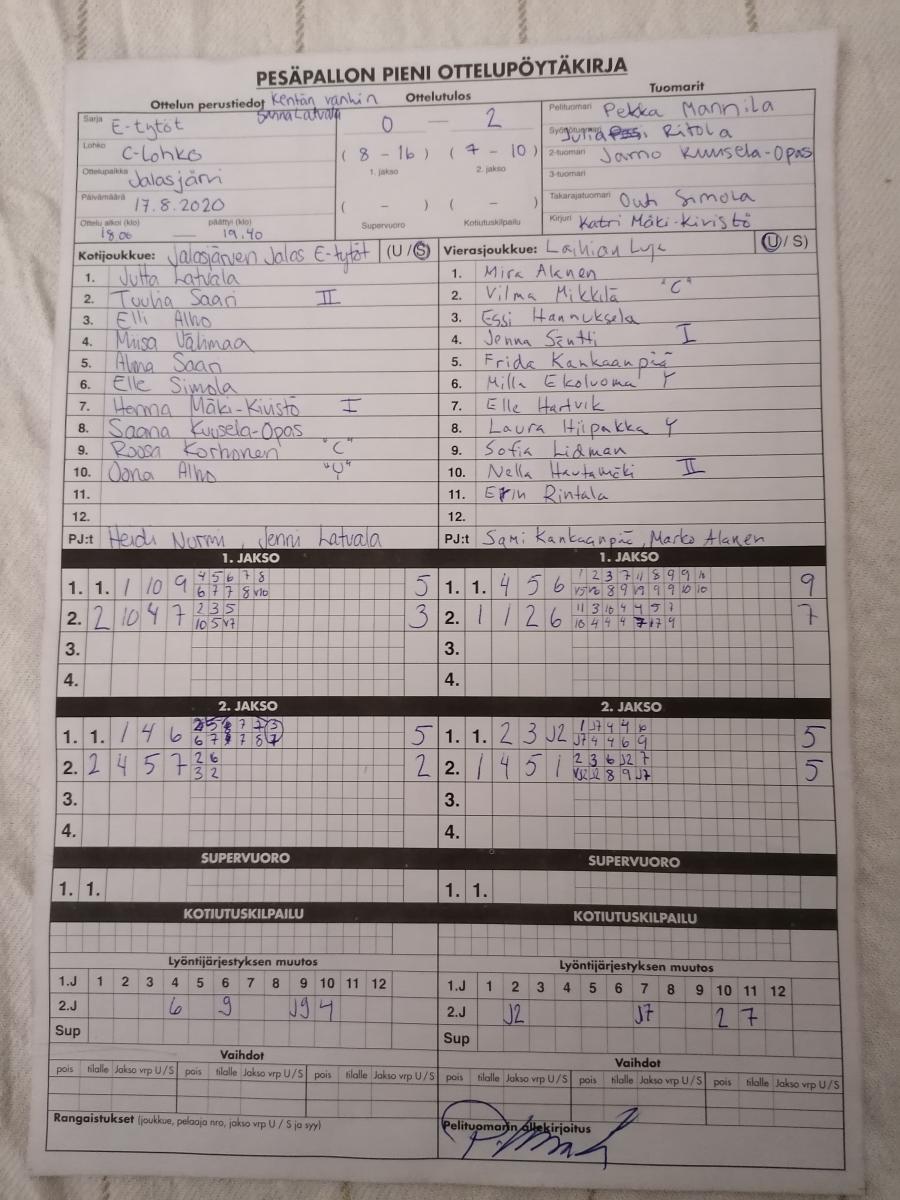 PESÄPALLON PIENI OTTELUPÖYTÄKIRJA
Ottelun perustiedot Kentän vanhin Ottelutulos Tuomarit
Sarja E-tytöt 0 — 2 Pelituomari Pekka Mannila
Julia Ritola
Lohko C-Lohko ( 8 - 16 ) ( 7 - 10 ) 2-tuomari Jarno Kuusela-Opas
Ottelupaikka Jalasjärvi 1. jakso 2. jakso 3-tuomari
Päivämäärä 17.8.2020 ( - ) ( - ) Takarajatuomari Outi Simola
Ottelu alkoi (klo) päättyi (klo) Supervuoro Kotiutuskilpailu Kirjuri Katri Mäki-Kivistö
18.00 — 19.40
Kotijoukkue: Jalasjärven Jalas E-tytöt (U / S) Vierasjoukkue: Laihian Luja (U / S)
1. Jutta Latvala 1. Mira Alanen
2. Tuulia Saari II 2. Vilma Mikkilä "C"
3. Elli Alho 3. Essi Hannuksela
4. Miisa Välimaa 4. Jenna Säntti I
5. Alma Saari 5. Frida Kankaanpää
6. Elle Simola 6. Milla Ekoluoma Y
7. Henna Mäki-Kivistö I 7. Elle Hartvik
8. Saana Kuusela-Opas 8. Laura Hiipakka Y
9. Roosa Korhonen "C" 9. Sofia Lidman
10. Oona Alho "Y" 10. Nella Hautamäki II
11. 11. Erin Rintala
12. 12.
PJ:t Heidi Nurmi, Jenni Latvala PJ:t Sami Kankaanpää, Marko Alanen
1. JAKSO 1. JAKSO
4 5 6 7 8 1 2 3 7 11 8 9 9 10
1. 1. 1 10 9 6 7 7 8 V10 5 1. 1. 4 5 6 V5 V6 8 9 V9 9 9 10 10 9
2 3 5 11 3 10 4 4 5 7
2. 2 10 4 7 10 5 V7 3 2. 1 1 2 6 10 4 4 4 7 V7 9 7
3. 3.
4. 4.
2. JAKSO 2. JAKSO
1 J7 4 4 10
1. 1. 1 4 6 5 1. 1. 2 3 J2 J7 4 4 6 9 5
2 6 2 3 6 J2 7
2. 2 4 5 7 3 2 2 2. 1 4 5 1 8 9 J7 5
3. 3.
4. 4.
SUPERVUORO SUPERVUORO
1. 1. 1. 1.
KOTIUTUSKILPAILU KOTIUTUSKILPAILU
Lyöntijärjestyksen muutos Lyöntijärjestyksen muutos
1.J 1 2 3 4 5 6 7 8 9 10 11 12 1.J 1 2 3 4 5 6 7 8 9 10 11 12
2.J 6 9 J9 4 2.J J2 J7 2 7
Sup Sup
Vaihdot Vaihdot
pois tilalle Jakso vrp U / S pois tilalle Jakso vrp U / S pois tilalle Jakso vrp U / S pois tilalle Jakso vrp U / S pois tilalle Jakso vrp U / S pois tilalle Jakso vrp U / S
Rangaistukset (joukkue, pelaaja nro, jakso vrp U / S ja syy) Pelituomarin allekirjoitus